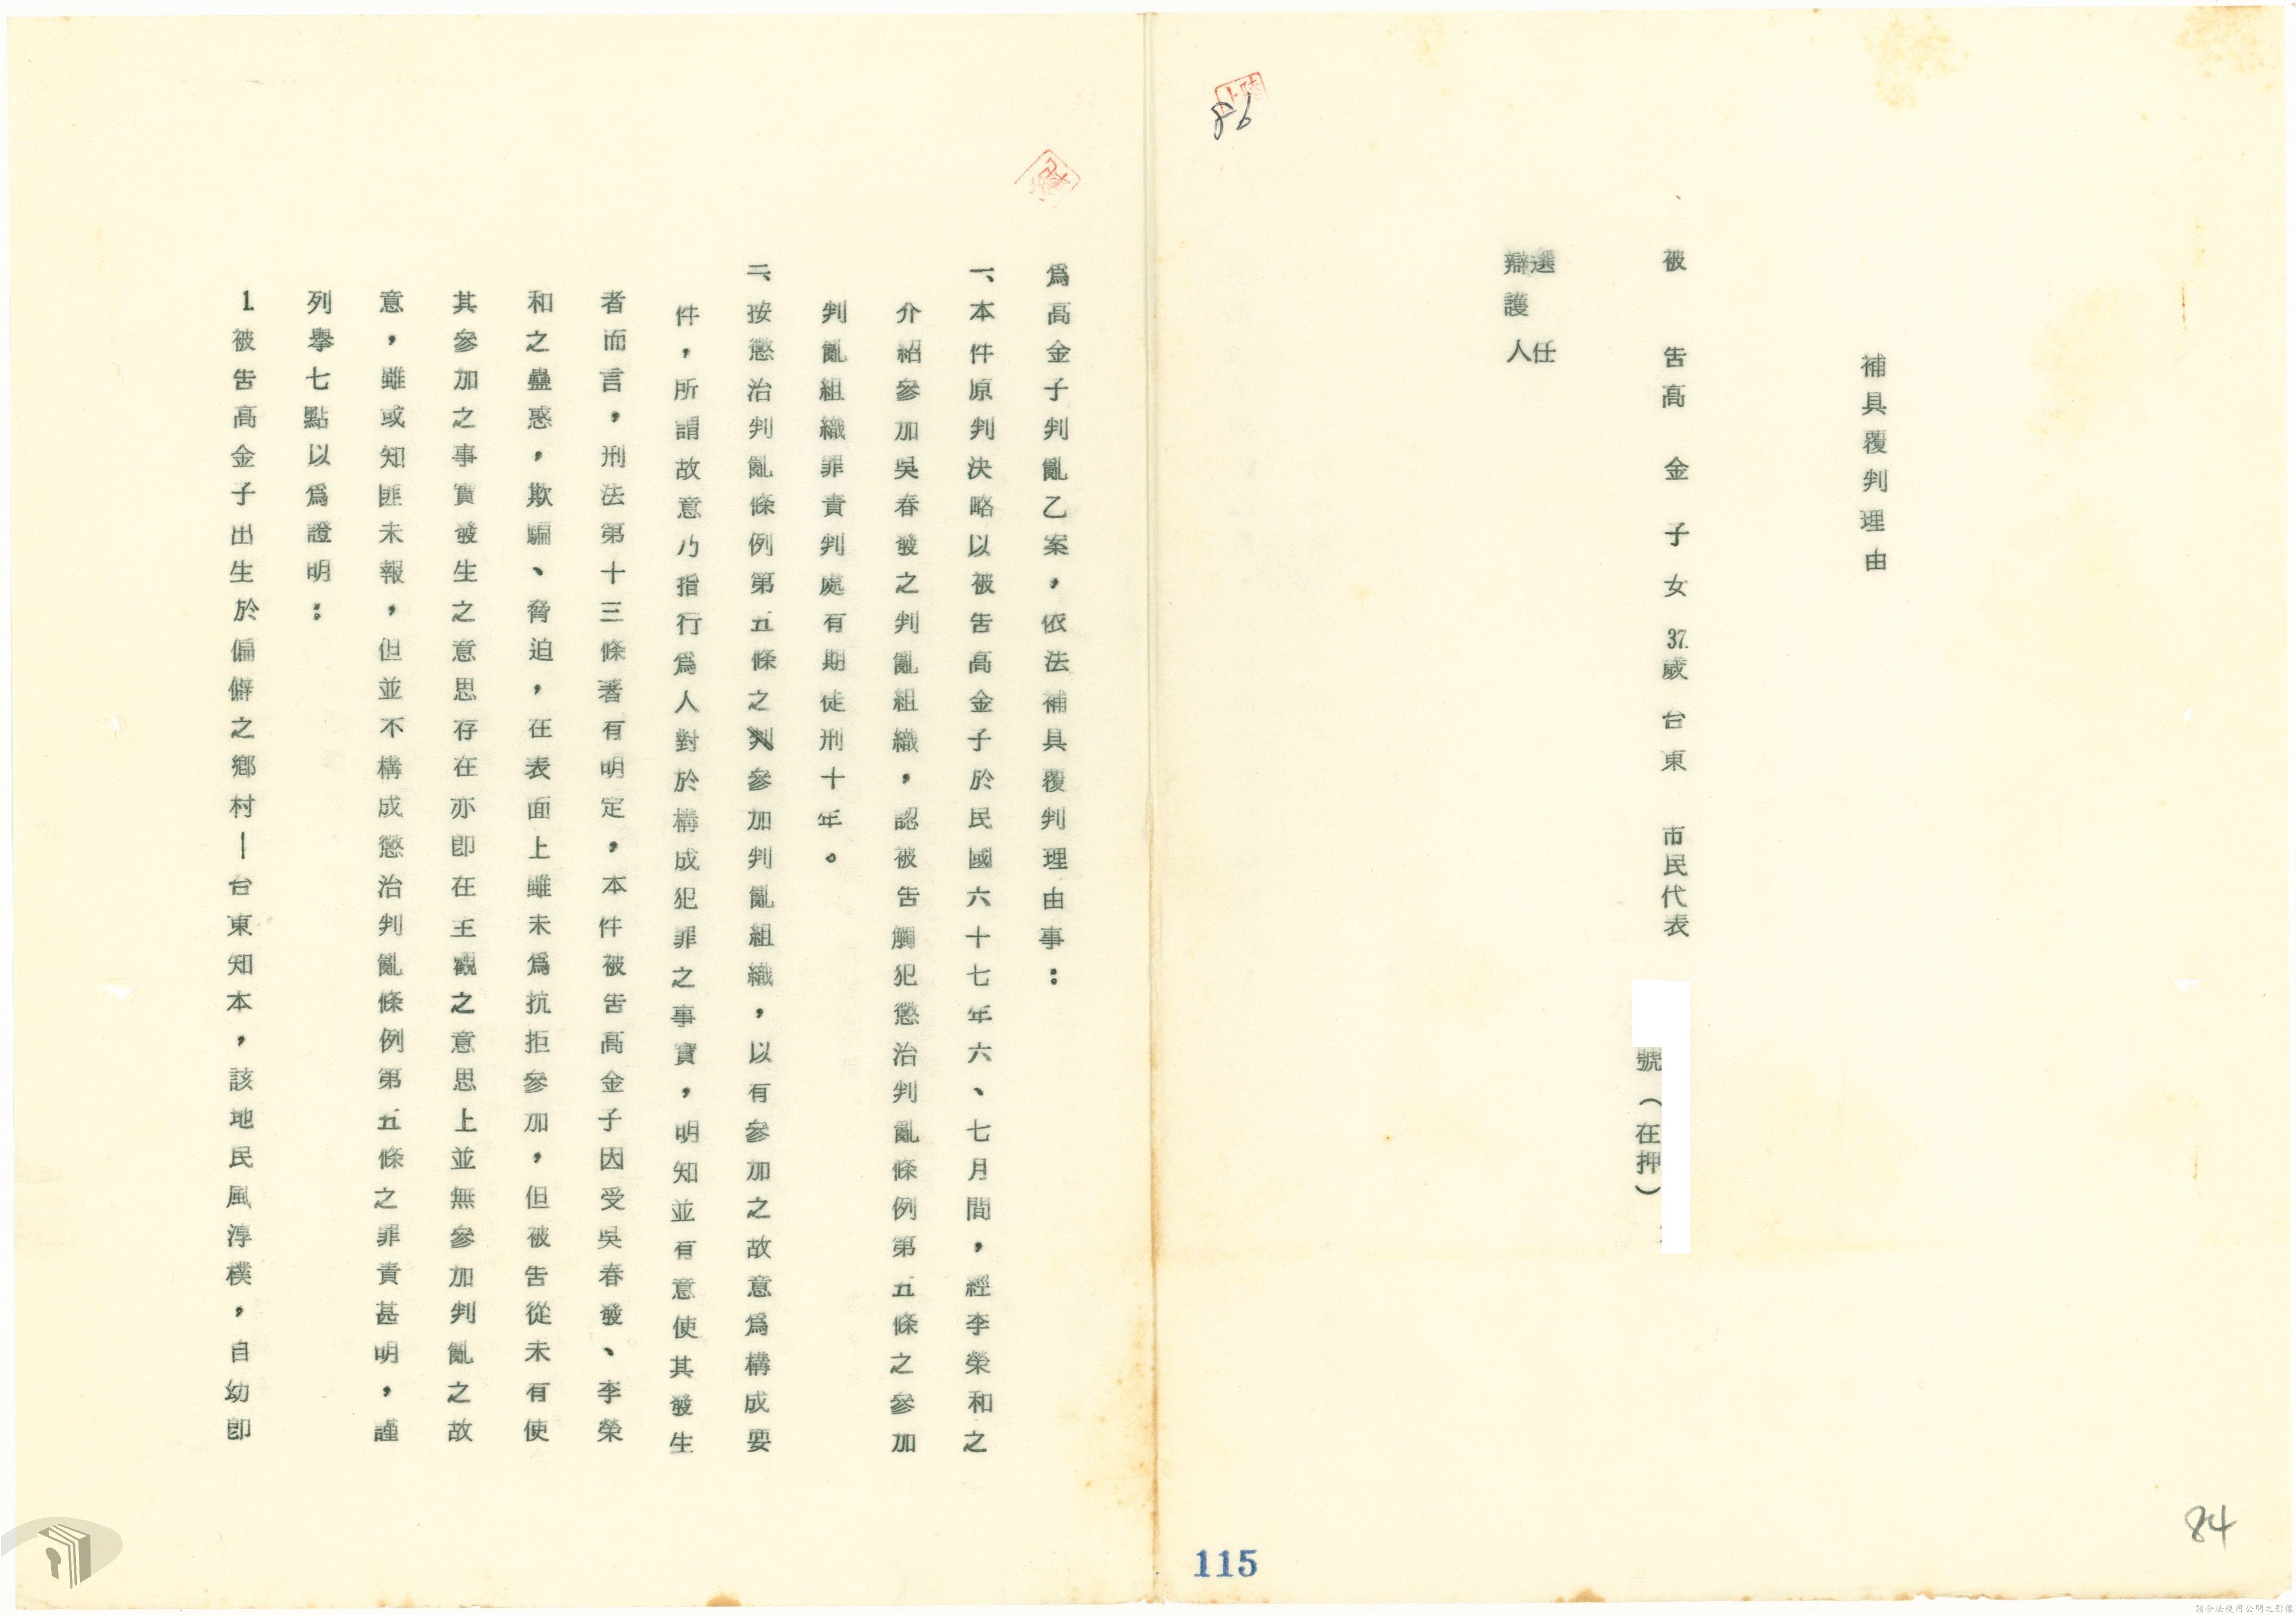 補具覆判理由
被告高金子女37.歲台東市民代表
號(在押)
選任
辯護人
86
為高金子判亂乙案,依法補具覆判理由事:
一、本件原判決略以被告高金子於民國六十七年六、七月間,經李榮和之
介紹參加吳春發之判亂組織,認被告觸犯懲治判亂條例第五條之參加
判亂組織罪責判處有期徒刑十年。
二、按懲治判亂條例第五條之判參加判亂組織,以有參加之故意為構成要
件,所謂故意乃指行為人對於構成犯罪之事實,明知並有意使其發生
者而言,刑法第十三條著有明定,本件被告高金子因受吳春發、李榮
和之蠱惑,欺騙、脅迫,在表面上雖未為抗拒參加,但被告從未有使
其參加之事實發生之意思存在亦即在主觀之意思上並無參加判亂之故
意,雖或知匪未報,但並不構成懲治判亂條例第五條之罪責甚明,謹
列舉七點以為證明:
1.被告高金子出生於偏僻之鄉村—台東知本,該地民風淳樸,自幼即
115
84
請合法使用公開之影像